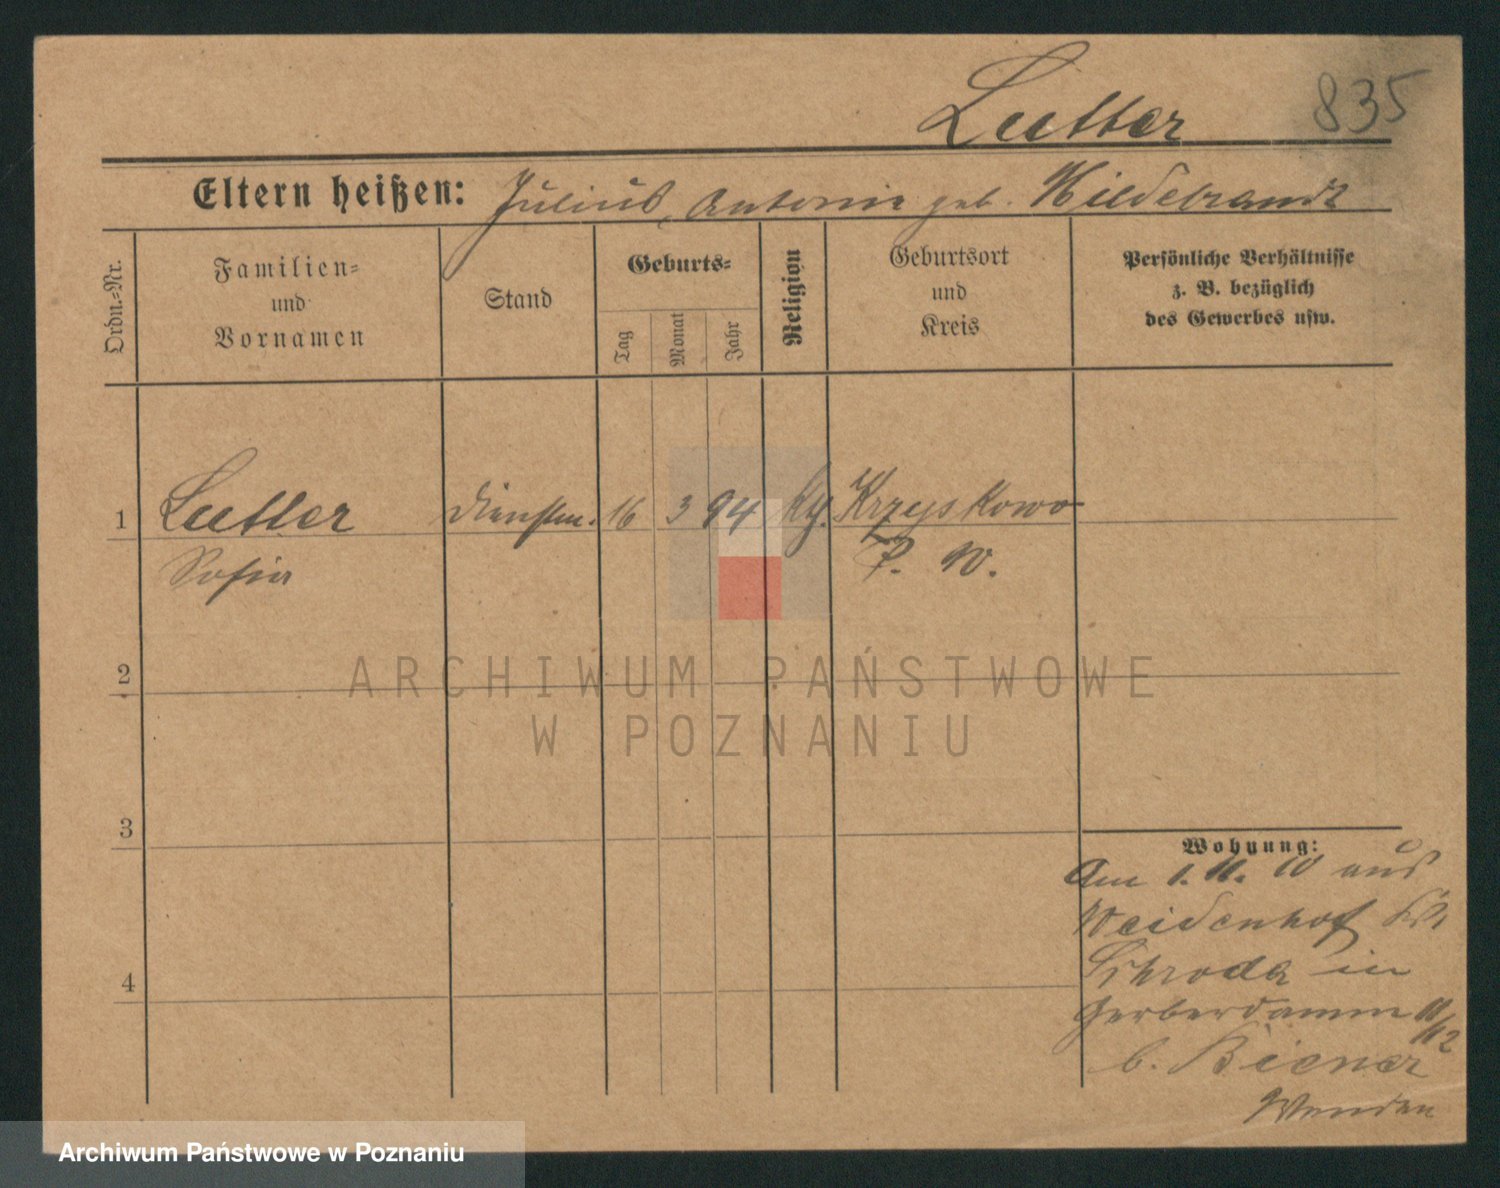 Lutter 835
Eltern heißen: Julius, Antonie geb. Hildebrandt
Ordn.=Nr.
Familien=
und
Vornamen
Stand
Geburts=
Tag
Monat
Jahr
Religion
Geburtsort
und
Kreis
Persönliche Verhältnisse
z. B. bezüglich
des Gewerbes usw.
1 Lutter Dienstm. 16 3 94 Krzyskowo
Sofia P. W.
2
ARCHIWUM PAŃSTWOWE
W POZNANIU
3
4
Wohnung:
Am 1. 11. 10 aus
Weidenhof Kr.
Schroda in
Gerberdamm 11/12
b. Biener
Archiwum Państwowe w Poznaniu